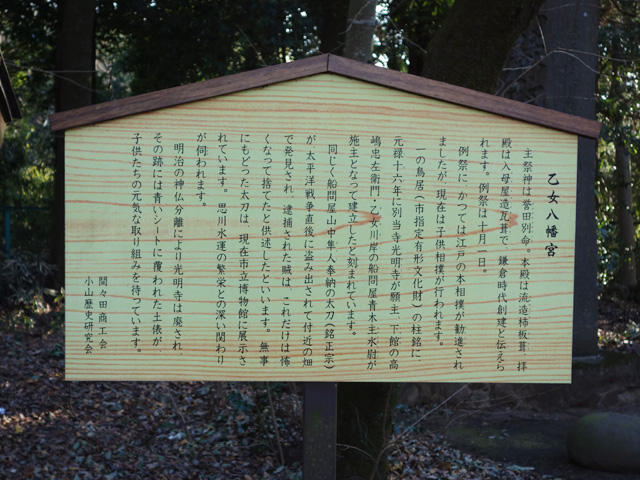 乙女八幡宮
主祭神は誉田別命。本殿は流造柿板葺、拝
殿は入母屋造瓦葺で、鎌倉時代創建と伝えら
れます。例祭は十月一日。
例祭に、かつては江戸の本相撲が勧進され
ましたが、現在は子供相撲が行われます。
一の鳥居（市指定有形文化財）の柱銘に、
元禄十六年に別当寺光明寺が願主、下館の高
嶋忠左衛門・乙女川岸の船問屋青木主水尉が
施主となって建立したと刻まれています。
同じく船問屋山中隼人奉納の太刀（銘正宗）
が、太平洋戦争直後に盗み出されて付近の畑
で発見され、逮捕された賊は、これだけは怖
くなって捨てたと供述したといいます。無事
にもどった太刀は、現在市立博物館に展示さ
れています。思川水運の繁栄との深い関わり
が伺われます。
明治の神仏分離により光明寺は廃され、
その跡には青いシートに覆われた土俵が、
子供たちの元気な取り組みを待っています。
間々田商工会
小山歴史研究会